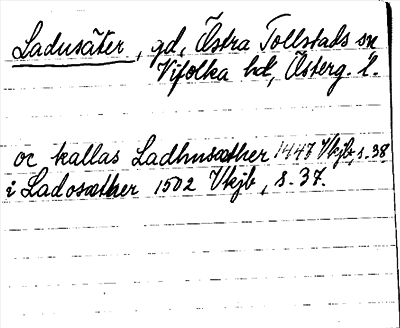 Ladusäter, gd, Östra Tollstads sn
Vifolka hd, Österg. l.
oc kallas Ladhusæther 1447 Vkjb, s. 38
i Ladosæther 1502 Vkjb, s. 37.